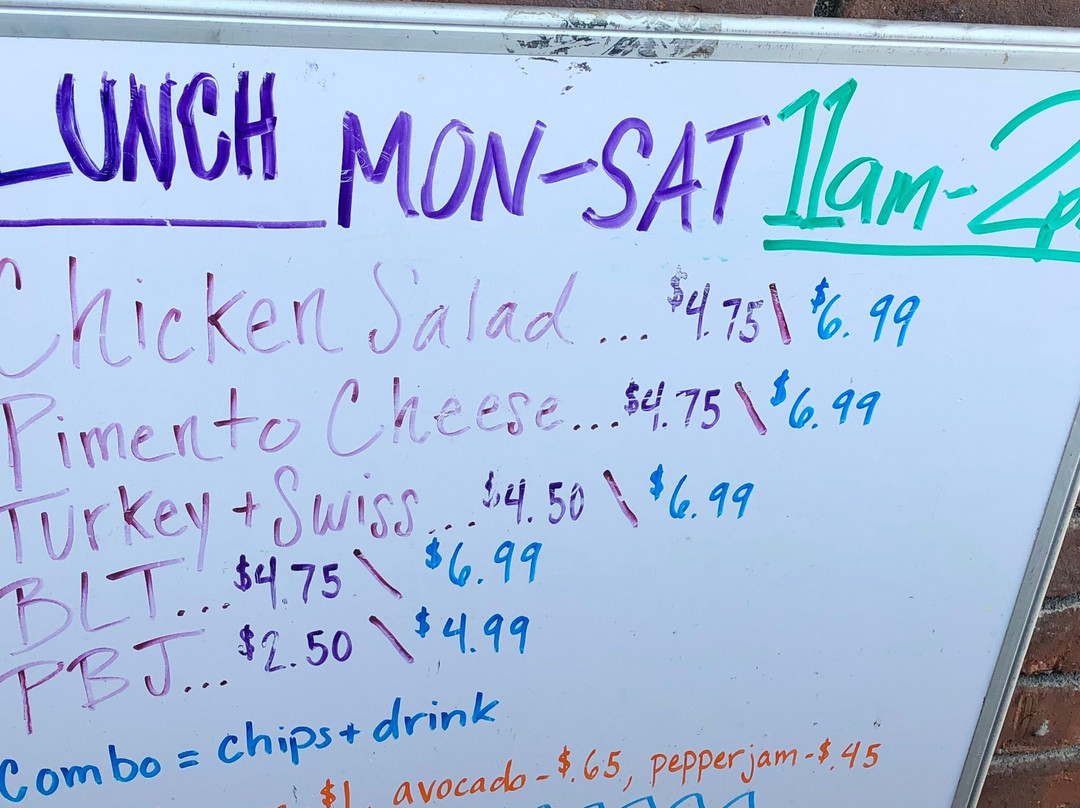 LUNCH MON-SAT 11am-2p
Chicken Salad ... $4.75 \ $6.99
Pimento Cheese... $4.75 \ $6.99
Turkey + Swiss ... $4.50 \ $6.99
BLT... $4.75 \ $6.99
PBJ... $2.50 \ $4.99
Combo = chips + drink
$1, avocado - $.65, pepper jam - $.45